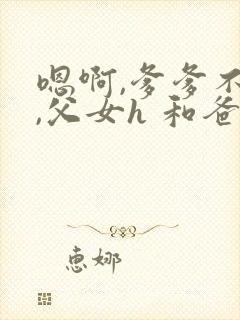 嗯啊,爹爹不
,父女h 和爸
恵娜